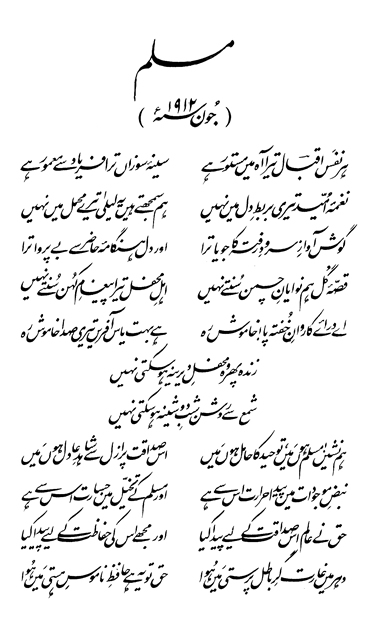 مسلم
(جُون ۱۹۱۲ء)
ہر نفَس اقبالؔ تیرا آہ میں مستور ہے
سینۂ سوزاں ترا فریاد سے معمور ہے
نغمۂ اُمّید تیری بربطِ دل میں نہیں
ہم سمجھتے ہیں یہ لیلیٰ تیرے محمل میں نہیں
گوش آوازِ سرودِ رفتہ کا جویا ترا
اور دل ہنگامۂ حاضر سے بے پروا ترا
قصّۂ گُل ہم نوایانِ چمن سُنتے نہیں
اہلِ محفل تیرا پیغامِ کُہن سُنتے نہیں
اے درائے کاروانِ خُفتہ پا! خاموش رہ
ہے بہت یاس آفریں تیری صدا خاموش رہ
زندہ پھر وہ محفلِ دیرینہ ہو سکتی نہیں
شمع سے روشن شبِ دوشینہ ہو سکتی نہیں
ہم نشیں! مسلم ہوں مَیں، توحید کا حامل ہوں مَیں
اس صداقت پر ازل سے شاہدِ عادل ہوں مَیں
نبضِ موجودات میں پیدا حرارت اس سے ہے
اور مسلم کے تخیّل میں جسارت اس سے ہے
حق نے عالم اس صداقت کے لیے پیدا کیا
اور مجھے اس کی حفاظت کے لیے پیدا کیا
دہر میں غارت گرِ باطل پرستی مَیں ہُوا
حق تو یہ ہے حافظِ ناموسِ ہستی مَیں ہُوا